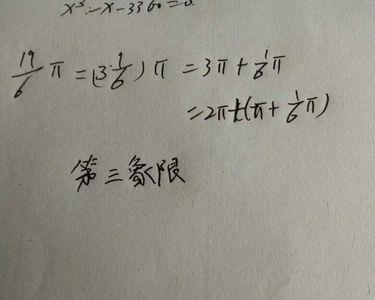 x²-x-3360=0.
19/6 π = (3 1/6) π = 3π + 1/6 π
= 2π + (π + 1/6 π)
第三象限